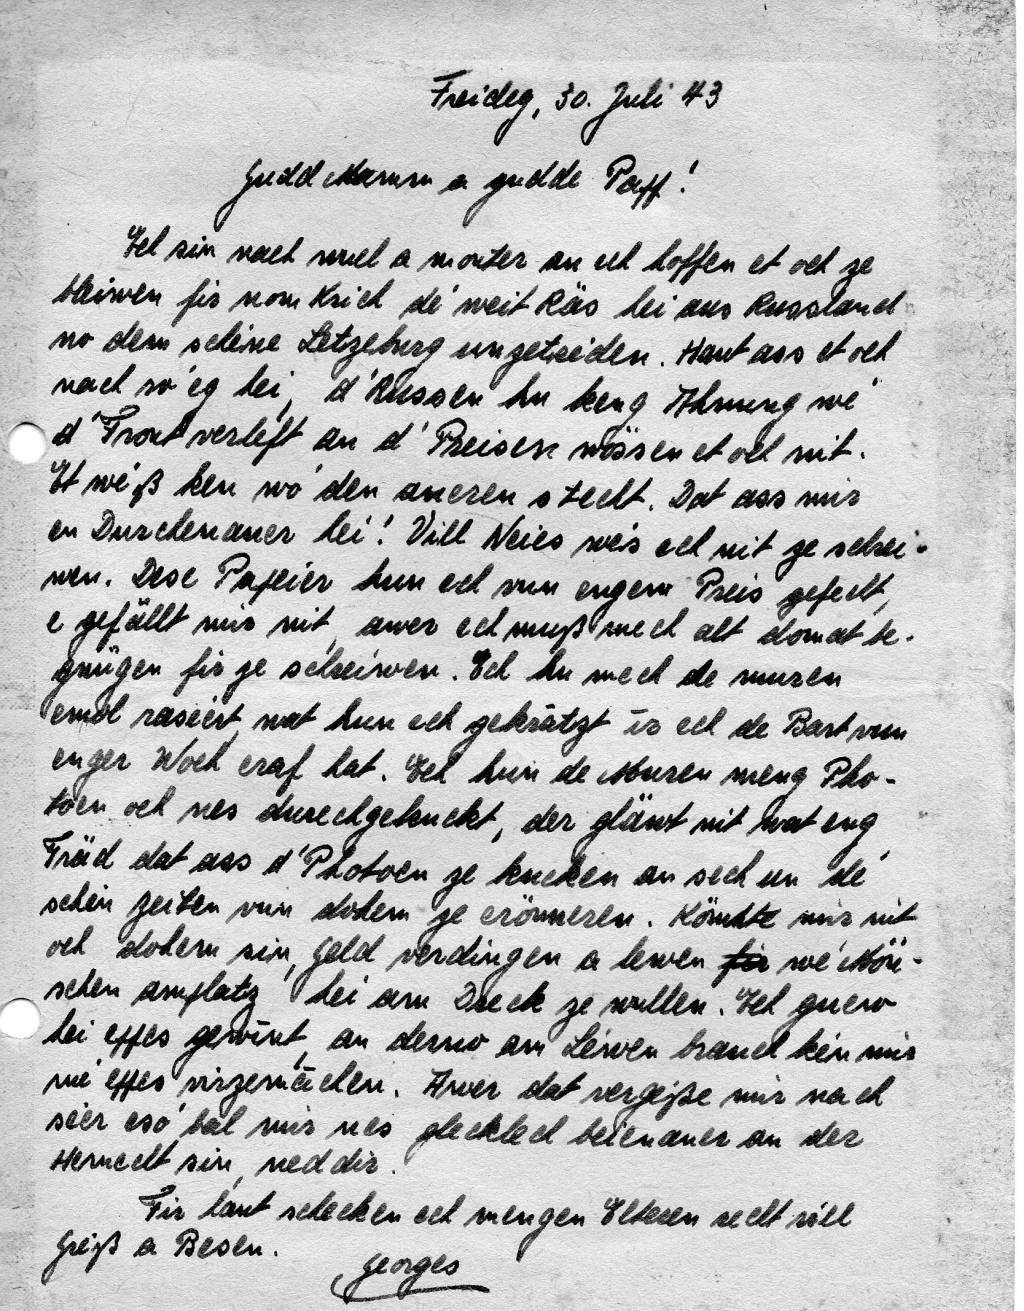 Freideg, 30. Juli 43
Gudd Mamm a gudde Papp!
Ech sin nach wuel a monter an ech hoffen et och ze
bleiwen fir nom Krich dé weit Räs hei aus Russland
no dem schéne Letzeburg unzetrieden. Haut ass et och
nach ro'eg hei, d'Russen hu keng Ahnung wé
d'Front verleft an d'Preisen wössen et och nit.
Et wéß ken wo den aneren stecht. Dat ass mir
en Durchenaner hei! Vill Neies wés ech nit ze schrei-
wen. Dese Papeier hun ech vun engem Preis gefecht,
e gefällt mir nit, awer ech muß mech alt domat be-
gnügen fir ze schreiwen. Ech hu mech de muren
emol raséert, wat hun ech gekrätzt ir ech de Bart vun
enger Woch eraf hat. Ech hun de Muren meng Pho-
toen och nes durechgekuckt, der gläwt nit wat eng
Fräd dat ass d'Photoen ze kucken an sech un dé
schéin Zeiten vun dohem ze erönneren. Kömte mir nit
och dohem sin, Geld verdingen a lewen wé Mön-
schen amplatz hei am Dreck ze wullen. Ech guew
hei eppes gewint, an derno am Léwen brauch ken mir
mé eppes virzemachen. Awer dat vergeße mir nach
séer esó bal mir nes glecklech beienaner an der
Hemecht sin, neddir.
Fir haut schecken ech mengen Elteren recht vill
Gréiß a Besen.
Georges